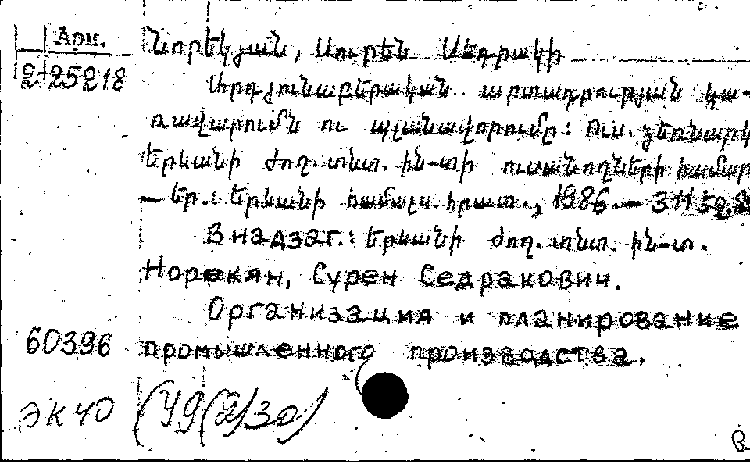 Арм.
2-25218
Նորեկյան, Սուրեն Սեդրակի
Արդյունաբերական արտադրության կա-
ռավարումն ու պլանավորումը: Ուս. ձեռնարկ
Երևանի ժող. տնտ. ին-տի ուսանողների համար
— Եր.: Երևանի համալս. հրատ., 1986.— 311
В надзаг.: Երևանի ժող. տնտ. ին-տ.
Норекян, Сурен Седракович.
Организация и планирование
60396 промышленного производства.
ЭК ЧО (У9(2)30)